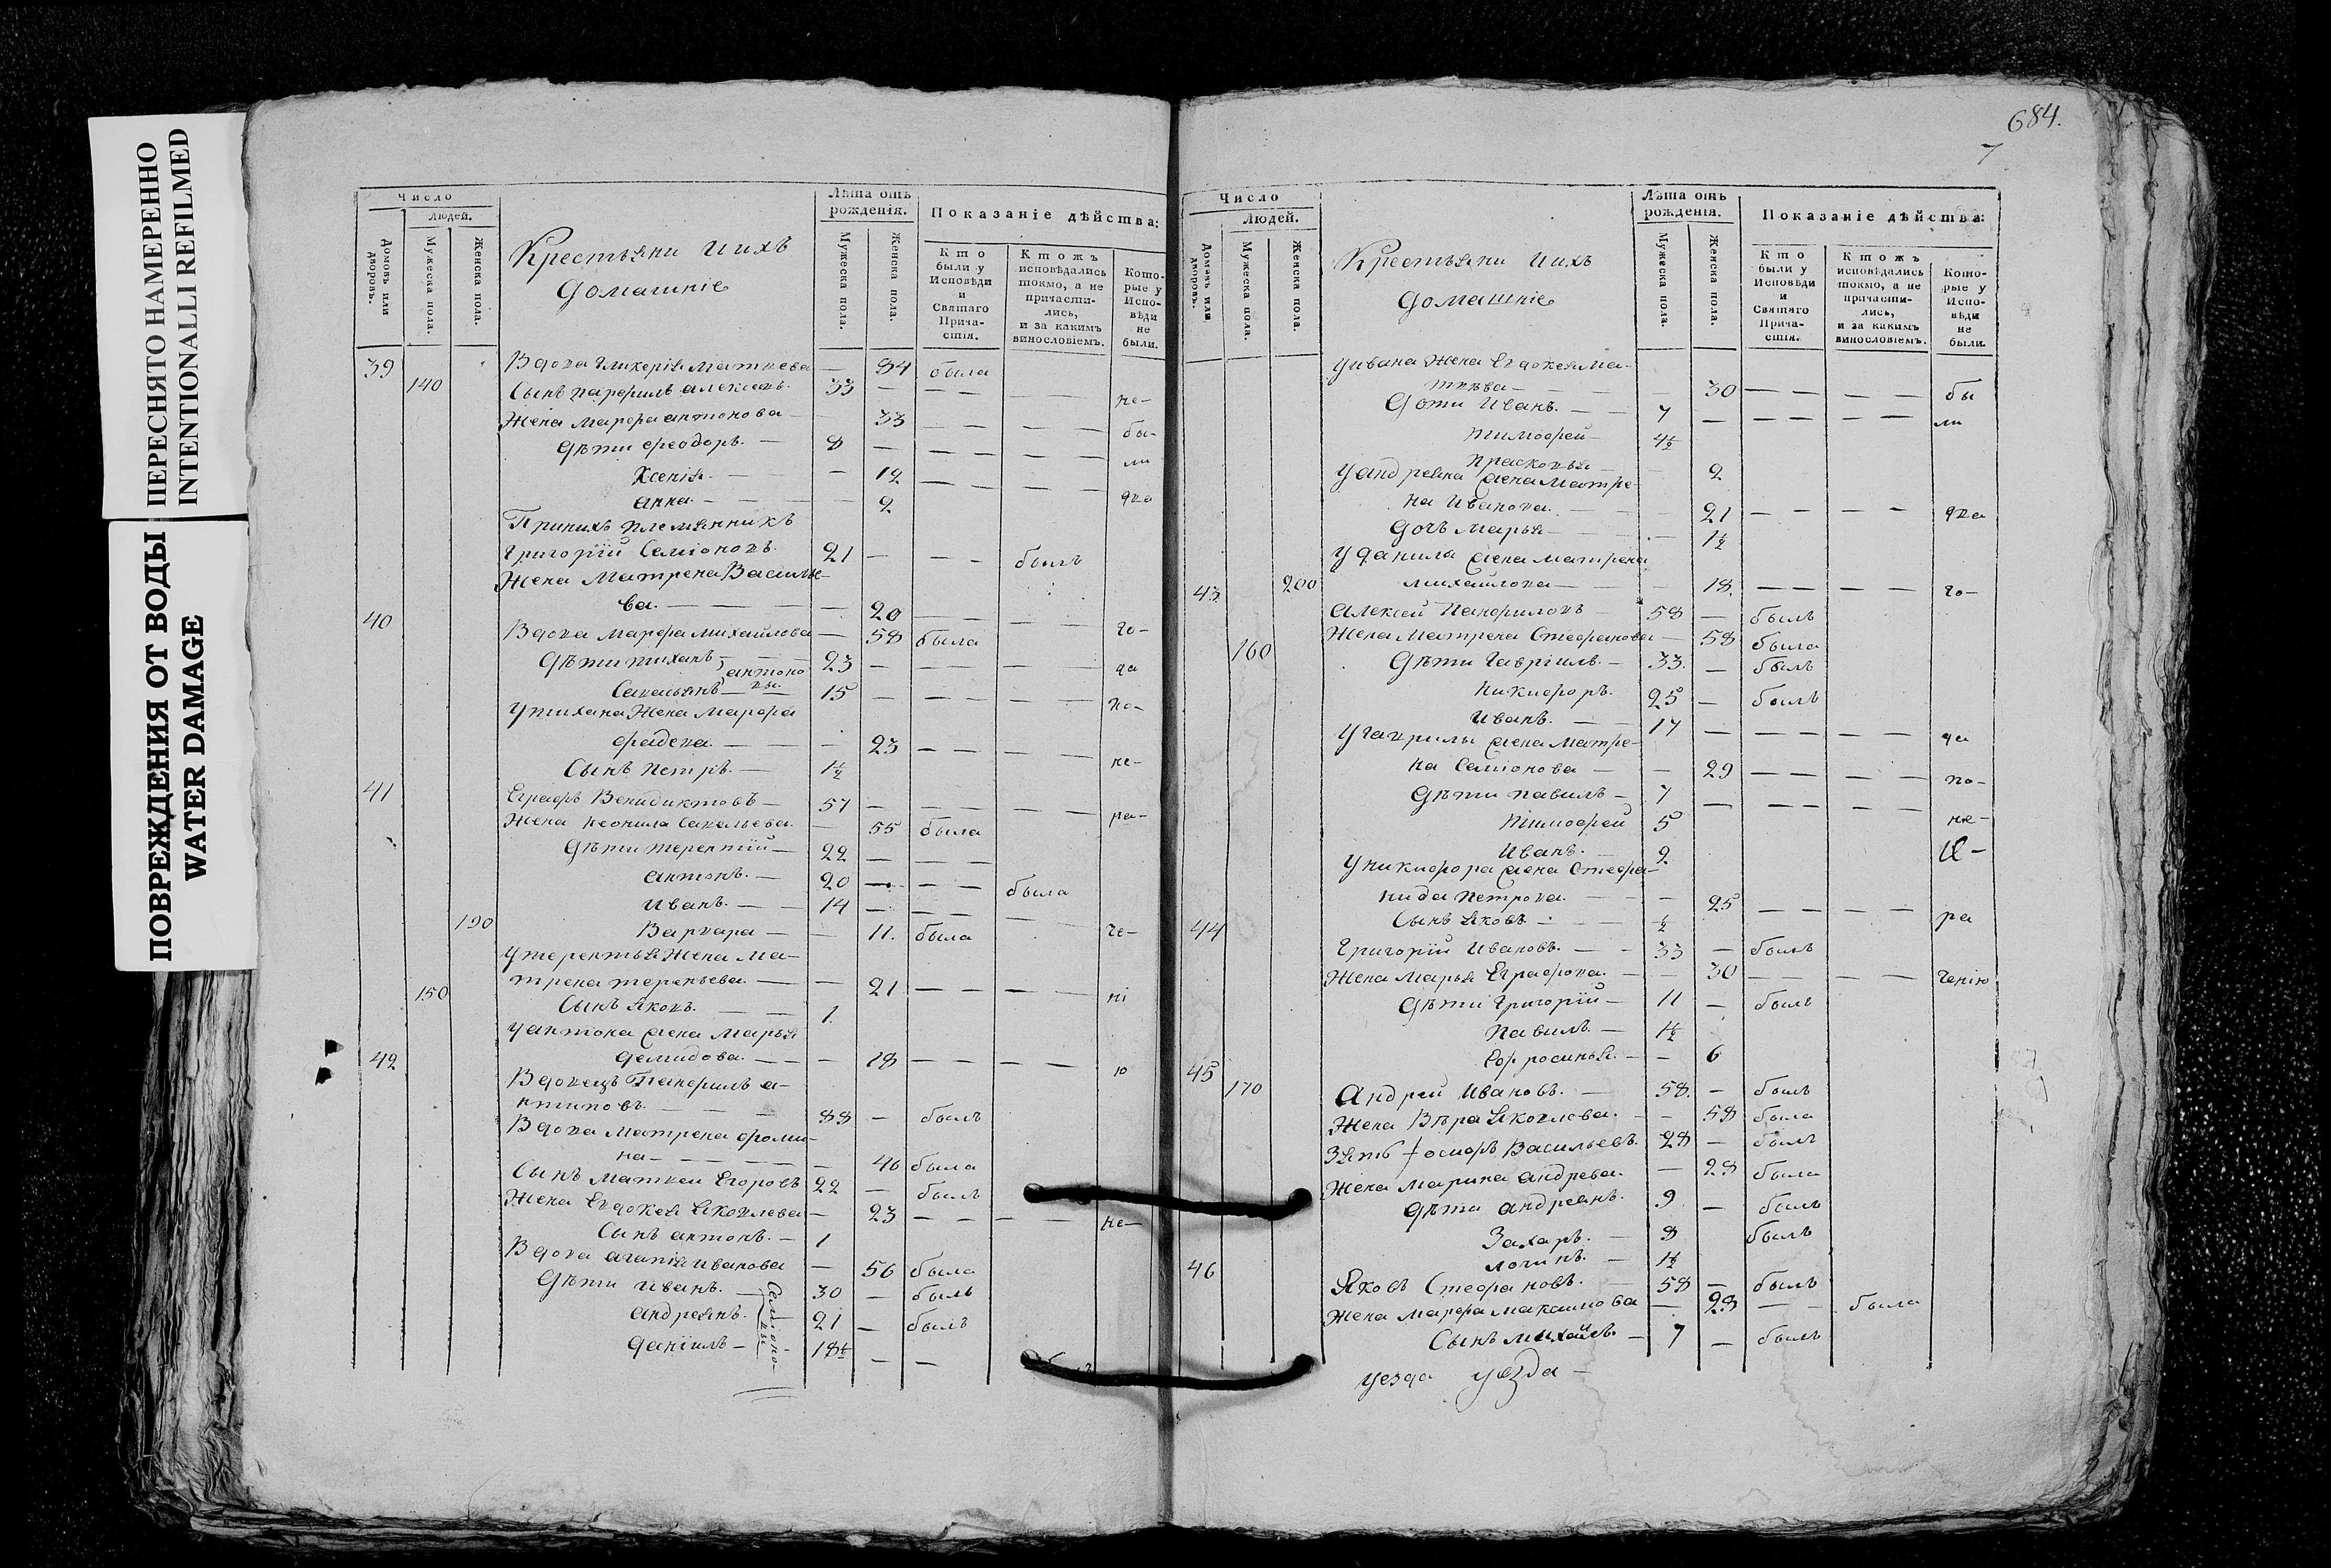 ПЕРЕСНЯТО НАМЕРЕННО
INTENTIONALLI REFILMED
ПОВРЕЖДЕНИЯ ОТ ВОДЫ
WATER DAMAGE
Число
Людей.
Домовъ или дворовъ.
Мужеска пола.
Женска пола.
Крестьяни и ихъ
домашніе
Лѣта отъ рожденія.
Мужеска пола.
Женска пола.
Показаніе дѣйства:
Кто были у Исповѣди и Святаго Прича-стія.
Ктожъ исповѣдались токмо, а не причасти-лись, и за какимъ винословіемъ.
Кото-рые у Испо-вѣди не были.
39 Вдова Гликерія Маткева — 84 была
140 Сынъ Парфилъ Алексѣевъ 33 — — — — не-
Жена Марфа Антонова — 33 — — — — бы-
Дѣти Феодоръ. — 8 — — — — — ли
Ксенія. — — — 12 — — — — два
Анна. — — — — 2
При нихъ племянникъ
Григорій Семіоновъ. 21 — — — былъ
Жена Матрена Василье-
ва. — — — — — 20 — — — — го-
40 Вдова Марфа Михайлова — 58 была
Дѣти Тиханъ, Антоно 23 — — — — да
Савасьянъ — вы. 15 — — — — — по-
У Тихана Жена Марфа
Фадева. — — — — 23 — — — — не-
Сынъ Петръ. — 1½
41 Еграфъ Венидиктовъ — 57 — — — — — ра-
Жена Неонила Савельева. — 55 была
Дѣти Терентій — 22 — — —
Антонъ. — 20 — — — была
Иванъ. — — 14 — — — — че-
190 Варвара — — 11. была
У Терентья Жена Ма-
трена Терентьева. — — 21 — — — — ні
150 Сынъ Яковъ. — — 1.
У Антона Жена Марья
Демидова. — — — 18 — — — — ю
42 Вдовецъ Панфилъ А-
нтиповъ. — — — 88 — былъ
Вдова Матрена Фоми-
на — — — — — — 46 была
Сынъ Маткеи Егоровъ 22 — былъ
Жена Евдокея Яковлева — 23 — — — — не—
Сынъ Антонъ. — 1
Вдова Агапія Иванова — 56 была
Дѣти Иванъ. — Семіоно-вы 30 — былъ
Андреянъ. — 21 — былъ
Даніилъ — 18½ — —
684.
7
Число
Людей.
Домовъ или дворовъ.
Мужеска пола.
Женска пола.
Крестьяни и ихъ
домашніе
Лѣта отъ рожденія.
Мужеска пола.
Женска пола.
Показаніе дѣйства:
Кто были у Исповѣди и Святаго Прича-стія.
Ктожъ исповѣдались токмо, а не причасти-лись, и за какимъ винословіемъ.
Кото-рые у Испо-вѣди не были.
У Ивана Жена Евдокея Ма-
ткева — — — 30 — — — — бы
Дѣти Иванъ. — — 7 — — — — — ли
Тимофеи — 4½
Прасковья — — 2
У Андреяна Жена Матре-
на Иванова. — — — 21 — — — — два
Дочь Марья — — — 1½
У Данила Жена Матрена
200 Михайлова — — — 18. — — — — го-
43 Алексеи Панфиловъ — 58 — былъ
Жена Матрена Стефанова — 58 была
160 Дѣти Гавріилъ. — 33. — былъ
Никифоръ. 25 — былъ
Иванъ. — — 17 — — — — — да
У Гаврилы Жена Матре-
на Семіонова — — 29 — — — — по-
Дѣти Павилъ — 7 — — — — — не-
Тимофеи 5
Иванъ. — 2
У Никифора Жена Стефа-
нида Петрова. — — — 25 — — — — ра
Сынъ Яковъ — ½
44 Григорій Ивановъ. — — 33 — былъ
Жена Марья Еграфова. — — 30 — — — — ченію
Дѣти Григорій — 11 — былъ
Павилъ. — 1½
Ефросинья. — — 6
45 170 Андреи Ивановъ. — 58. — былъ
Жена Вѣра Яковлева. — — 58 была
Зять Іосифъ Васильевъ. 28 — былъ
Жена Марина Андрева. — 28 была
Дѣти Андреянъ. 9 — былъ
Захаръ. — 8 былъ
Логинъ. — 1½
46 Яковъ Стефановъ. — 58 — былъ
Жена Марфа Максимова — 28 — — была
Сынъ Михаилъ. — 7 — былъ
уезда уезда —